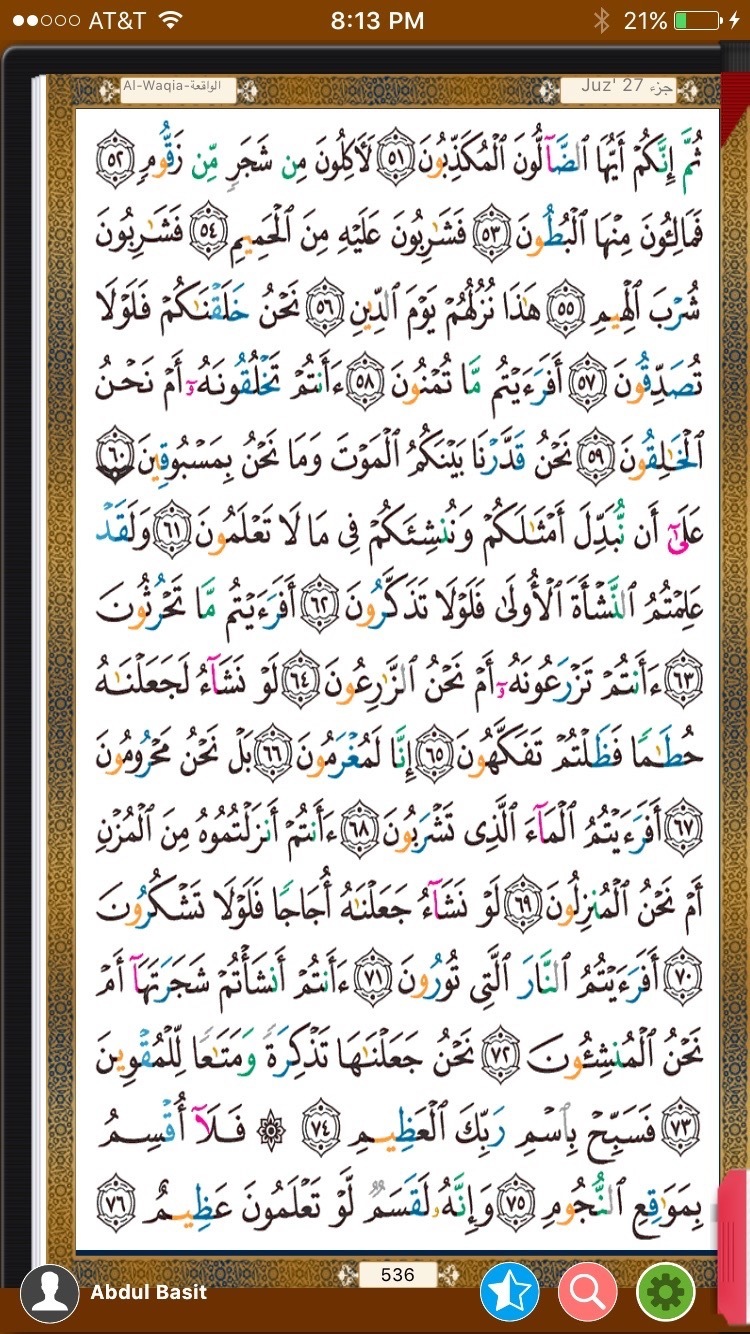 AT&T 8:13 PM 21%
Al-Waqia-الواقعة Juz' 27 جزء
ثُمَّ إِنَّكُمْ أَيُّهَا ٱلضَّآلُّونَ ٱلْمُكَذِّبُونَ ٥١ لَأَكِلُونَ مِن شَجَرٍ مِّن زَقُّومٍ ٥٢
فَمَالِـُٔونَ مِنْهَا ٱلْبُطُونَ ٥٣ فَشَـٰرِبُونَ عَلَيْهِ مِنَ ٱلْحَمِيمِ ٥٤ فَشَـٰرِبُونَ
شُرْبَ ٱلْهِيمِ ٥٥ هَـٰذَا نُزُلُهُمْ يَوْمَ ٱلدِّينِ ٥٦ نَحْنُ خَلَقْنَـٰكُمْ فَلَوْلَا
تُصَدِّقُونَ ٥٧ أَفَرَءَيْتُم مَّا تُمْنُونَ ٥٨ ءَأَنتُمْ تَخْلُقُونَهُۥٓ أَمْ نَحْنُ
ٱلْخَـٰلِقُونَ ٥٩ نَحْنُ قَدَّرْنَا بَيْنَكُمُ ٱلْمَوْتَ وَمَا نَحْنُ بِمَسْبُوقِينَ ٦٠
عَلَىٰٓ أَن نُّبَدِّلَ أَمْثَـٰلَكُمْ وَنُنشِئَكُمْ فِى مَا لَا تَعْلَمُونَ ٦١ وَلَقَدْ
عَلِمْتُمُ ٱلنَّشْأَةَ ٱلْأُولَىٰ فَلَوْلَا تَذَكَّرُونَ ٦٢ أَفَرَءَيْتُم مَّا تَحْرُثُونَ
٦٣ ءَأَنتُمْ تَزْرَعُونَهُۥٓ أَمْ نَحْنُ ٱلزَّٰرِعُونَ ٦٤ لَوْ نَشَآءُ لَجَعَلْنَـٰهُ
حُطَـٰمًا فَظَلْتُمْ تَفَكَّهُونَ ٦٥ إِنَّا لَمُغْرَمُونَ ٦٦ بَلْ نَحْنُ مَحْرُومُونَ
٦٧ أَفَرَءَيْتُمُ ٱلْمَآءَ ٱلَّذِى تَشْرَبُونَ ٦٨ ءَأَنتُمْ أَنزَلْتُمُوهُ مِنَ ٱلْمُزْنِ
أَمْ نَحْنُ ٱلْمُنزِلُونَ ٦٩ لَوْ نَشَآءُ جَعَلْنَـٰهُ أُجَاجًا فَلَوْلَا تَشْكُرُونَ
٧٠ أَفَرَءَيْتُمُ ٱلنَّارَ ٱلَّتِى تُورُونَ ٧١ ءَأَنتُمْ أَنشَأْتُمْ شَجَرَتَهَآ أَمْ
نَحْنُ ٱلْمُنشِـُٔونَ ٧٢ نَحْنُ جَعَلْنَـٰهَا تَذْكِرَةً وَمَتَـٰعًا لِّلْمُقْوِينَ
٧٣ فَسَبِّحْ بِٱسْمِ رَبِّكَ ٱلْعَظِيمِ ٧٤ ۞ فَلَآ أُقْسِمُ
بِمَوَٰقِعِ ٱلنُّجُومِ ٧٥ وَإِنَّهُۥ لَقَسَمٌ لَّوْ تَعْلَمُونَ عَظِيمٌ ٧٦
536
Abdul Basit